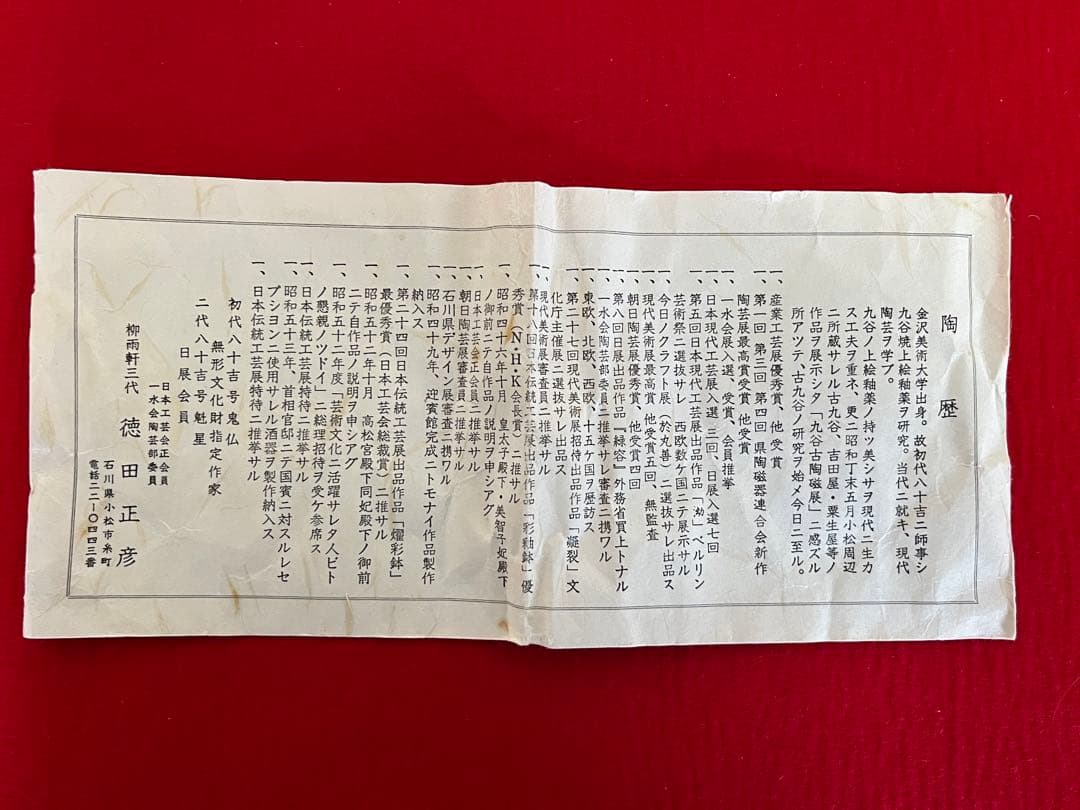 陶歴
金沢美術大学出身。故初代八十吉ニ師事シ
九谷焼上絵釉薬ヲ研究。当代ニ就キ、現代
陶芸ヲ学ブ。
九谷ノ上絵釉薬ノ持ツ美シサヲ現代ニ生カ
ス工夫ヲ重ネ、更ニ昭和丁末五月小松周辺
ニ所蔵サレル古九谷、吉田屋・粟生屋等ノ
作品ヲ展示シタ「九谷古陶磁展」ニ感ズル
所アツテ、古九谷ノ研究ヲ始メ今日ニ至ル。
一、産業工芸展優秀賞、他受賞
一、第一回 第三回 第四回 県陶磁器連合会新作
陶芸展最高賞受賞 他受賞
一、一水会展入選、受賞、会員推挙
一、日本現代工芸展入選 三回、日展入選七回
一、第五回日本現代工芸展出品作品「渤」ベルリン
芸術祭ニ選抜サレ 西欧数ケ国ニテ展示サル
一、今日ノクラフト展(於丸善)ニ選抜サレ出品ス
一、現代美術展最高賞 他受賞五回、無監査
一、朝日陶芸展優秀賞、他受賞四回
一、第八回日展出品作品『緑容』外務省買上トナル
一、一水会陶芸部委員ニ推挙サレ審査ニ携ワル
一、東欧、北欧、西欧、十五ケ国ヲ歴訪ス
一、第二十七回現代美術展招待出品作品「凝裂」文
化庁主催展ニ選抜サレ出品ス
一、現代美術展審査員ニ推挙サル
一、第十八回日本伝統工芸展出品作品「彩釉鉢」優
秀賞(N・H・K会長賞)ニ推サル
一、昭和四十六年十月 皇太子殿下・美智子妃殿下
ノ御前ニテ自作品ノ説明ヲ申シアグ
一、日本工芸会正会員ニ推挙サル
一、朝日陶芸展審査員ニ推挙サル
一、石川県デザイン展審査ニ携ワル
一、昭和四十九年、迎賓館完成ニトモナイ作品製作
納入ス
一、第二十四回日本伝統工芸展出品作品「燿彩鉢」
最優秀賞(日本工芸会総裁賞)ニ推サル
一、昭和五十二年十月 高松宮殿下同妃殿下ノ御前
ニテ自作品ノ説明ヲ申シアグ
一、昭和五十二年度「芸術文化ニ活躍サレタ人ビト
ノ懇親ノツドイ」ニ総理招待ヲ受ケ参席ス
一、日本伝統工芸展特待ニ推挙サル
一、昭和五十三年、首相官邸ニテ国賓ニ対スルレセ
プションニ使用サレル酒器ヲ製作納入ス
一、日本伝統工芸展特待ニ推挙サル
初代八十吉号鬼仏
無形文化財指定作家
二代八十吉号魁星
日展会員
日本工芸会正会員
一水会陶芸部委員
柳雨軒三代 徳田正彦
石川県小松市糸町
電話二二-〇四四三番